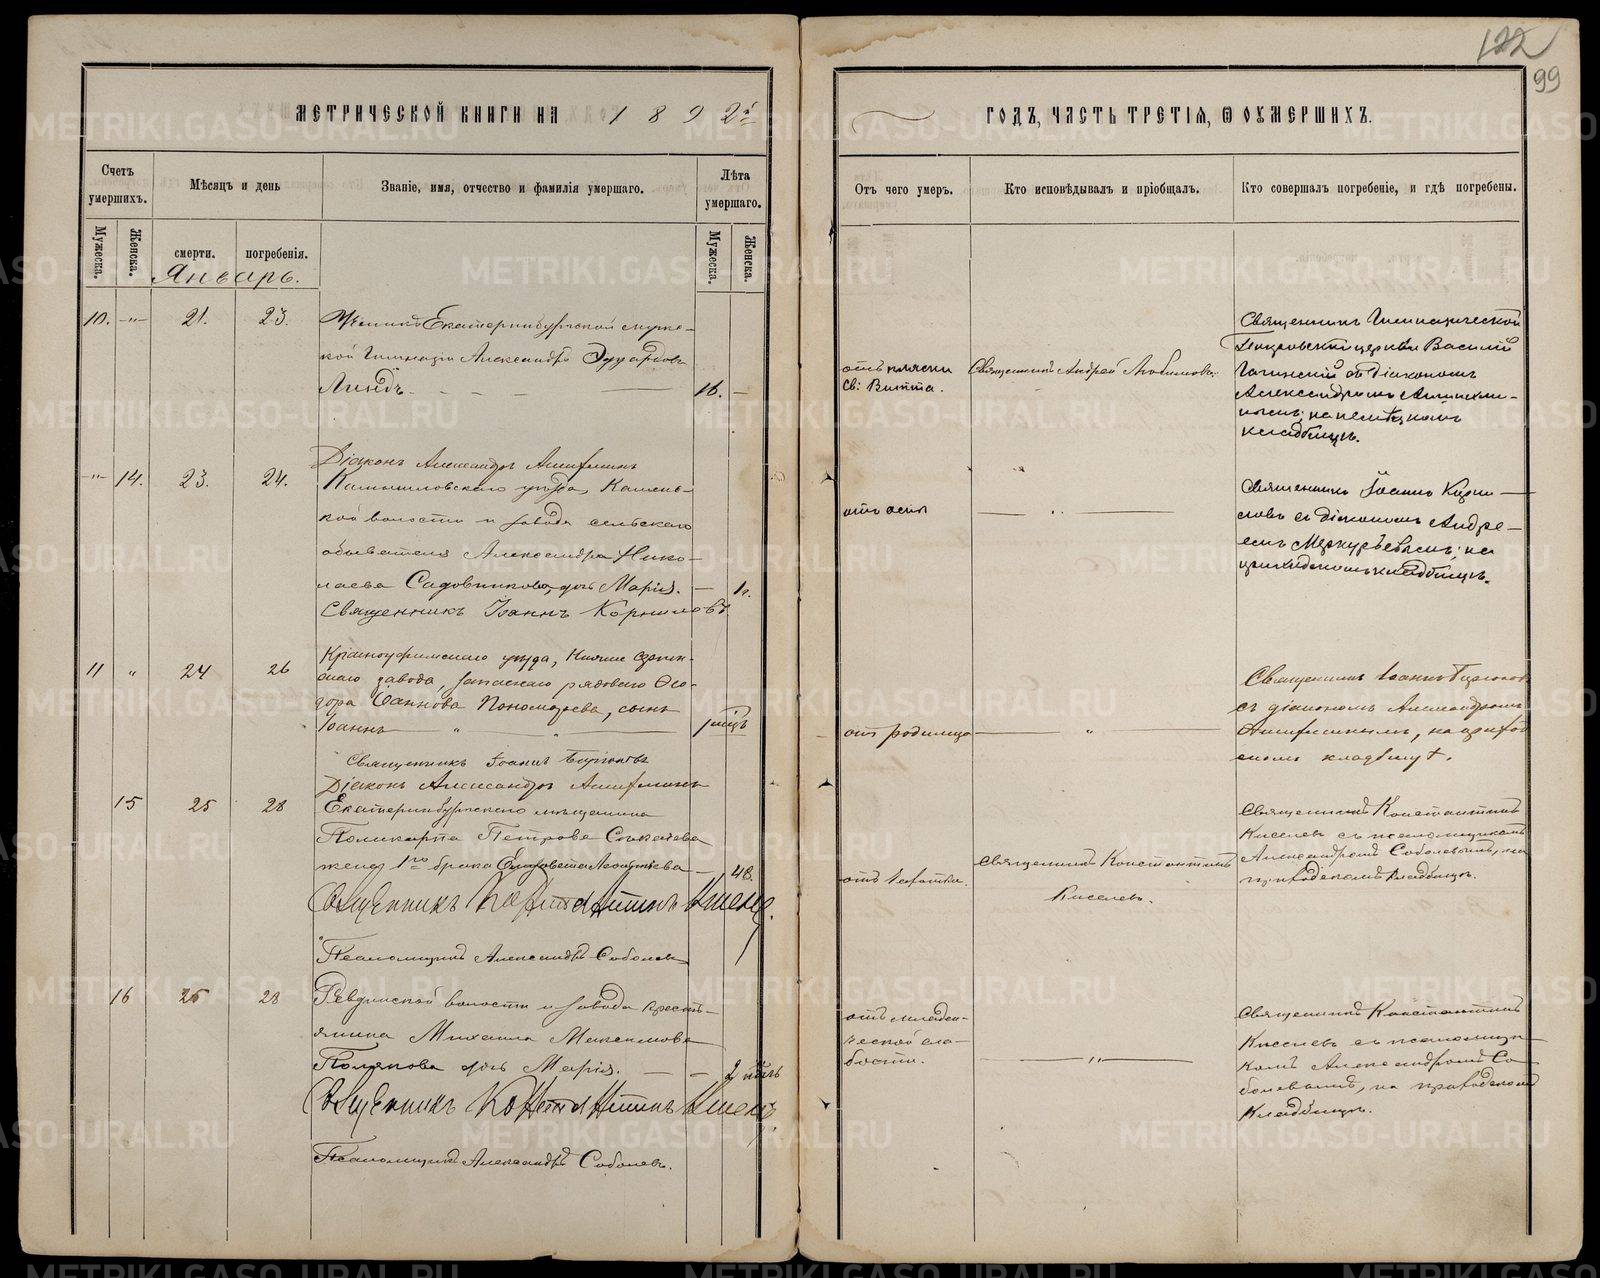 122
99
МЕТРИЧЕСКОЙ КНИГИ НА 1892й
ГОДЪ, ЧАСТЬ ТРЕТІЯ, Ѿ ОУМЕРШИХЪ.
Счетъ умершихъ.
Мѣсяцъ и день
Званіе, имя, отчество и фамилія умершаго.
Лѣта умершаго.
Отъ чего умеръ.
Кто исповѣдывалъ и пріобщалъ.
Кто совершалъ погребеніе, и гдѣ погребены.
Мужеска.
Женска.
смерти.
погребенія.
Мужеска.
Женска.
Январь.
10. -"- 21. 23.
Ученикъ Екатеринбургской мужс-
кой Гимназіи Александръ Эдуардовъ
Линдъ. - - - 16. -
отъ пляски
Св: Витта.
Священникъ Андрей Любимовъ.
Священникъ Гимназической
церкви Василій
съ діакономъ
Александромъ
кладбищѣ.
Діаконъ Александръ
-"- 14. 23. 24.
Камышловскаго уѣзда, Камен-
кой волости и завода сельскаго
обывателя Александра Нико-
лаева Садовникова, дочь Марія. - 1 г.
Священникъ Іоаннъ Корниловъ
отъ оспы
Священникъ Іоаннъ Корни-
ловъ съ діакономъ Андре-
емъ Меркурьевымъ; на
приходскомъ кладбищѣ.
11 " 24 26
Красноуфимскаго уѣзда,
завода, запаснаго рядоваго Ѳео-
дора Іаннова Пономарева, сынъ
Іоаннъ
отъ родимца
Священникъ Іоаннъ
съ діакономъ Александромъ
кладбищѣ.
Священникъ Іоаннъ
Діаконъ Александръ
15 25 28
Екатеринбургскаго мѣщанина
Поликарпа Петрова
жена 1го брака Елизавета Леонтьева - 48.
Священникъ Константинъ Киселевъ.
Псаломщикъ Александръ Соболевъ
отъ чахотки.
Священникъ Константинъ
Киселевъ.
Священникъ Константинъ
Киселевъ съ псаломщикомъ
Александромъ Соболевымъ, на
приходскомъ кладбищѣ.
16 25 28
Ревдинской волости и завода кресть-
янина Михаила Максимова
Полякова дочь Марія. - - 2
Священникъ Константинъ Киселевъ
Псаломщикъ Александръ Соболевъ.
отъ младен-
ческой сла-
бости.
Священникъ Константинъ
Киселевъ съ псаломщи-
комъ Александромъ Со-
болевымъ, на приходскомъ
кладбищѣ.
METRIKI.GASO-URAL.RU